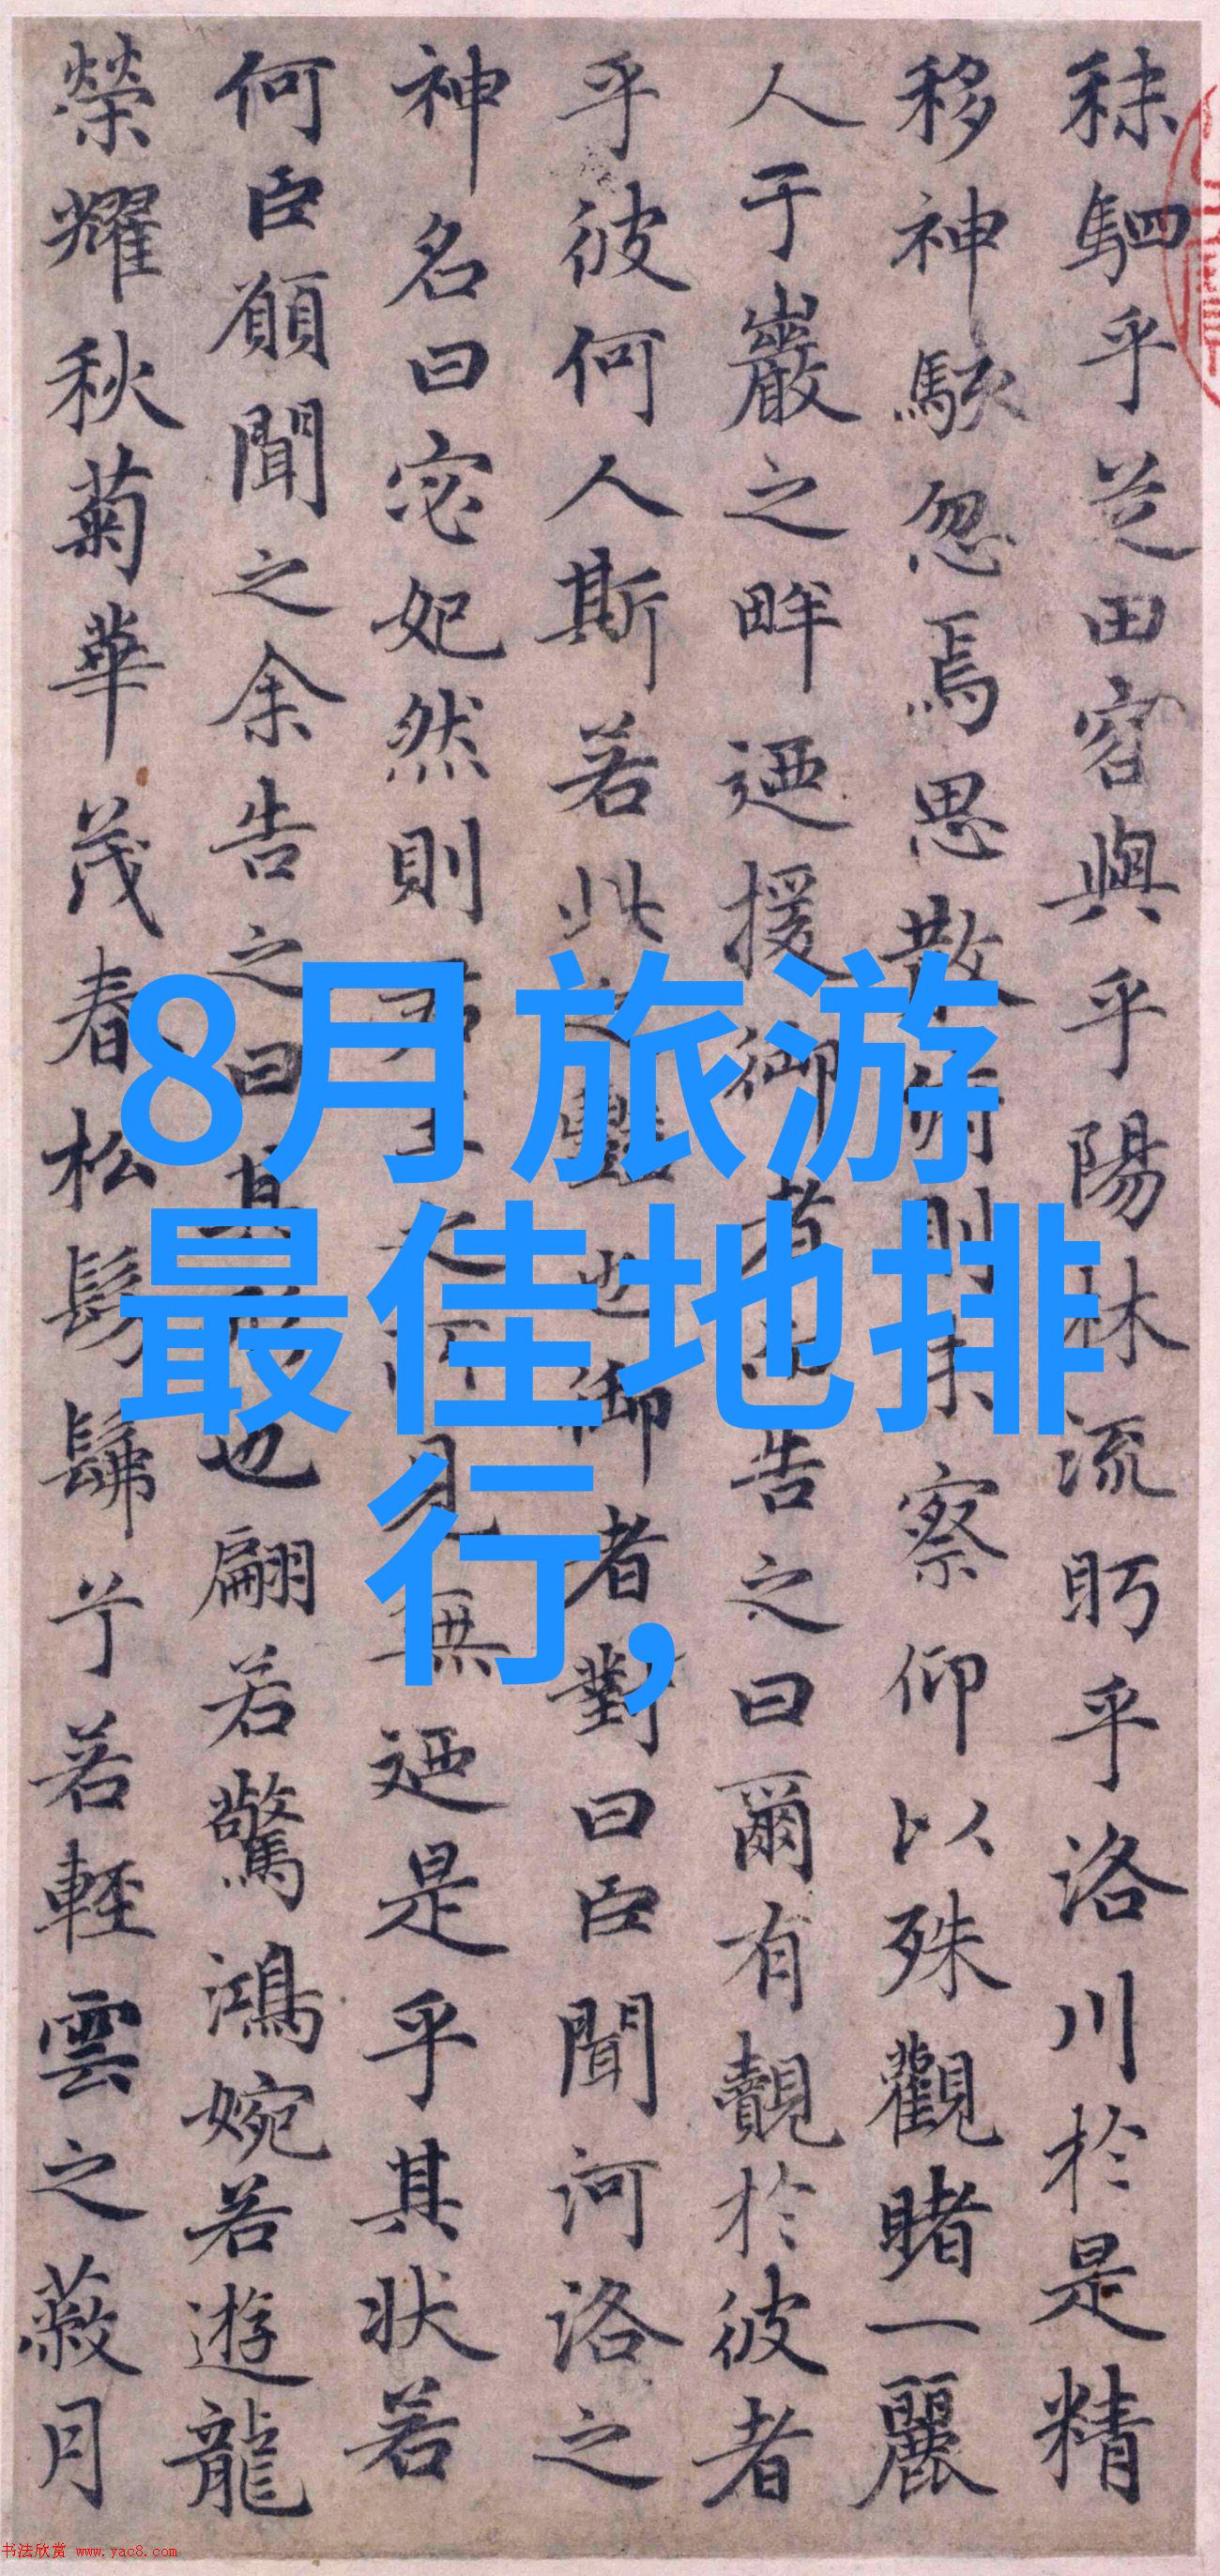 秣駟乎芝田容與乎陽林流眄乎洛川於是精
移神駭忽焉思散俯則未察仰以殊觀睹一麗
人于巖之畔迺援御者而告之曰爾有覿於彼者
乎彼何人斯若此之豔也御者對曰臣聞河洛之
神名曰宓妃然則君王之所見無迺是乎其狀若
何臣願聞之余告之曰其形也翩若驚鴻婉若遊龍
榮耀秋菊華茂春松髣髴兮若輕雲之蔽月
8月旅游
最佳地排
行,
书法欣赏 www.yac8.com